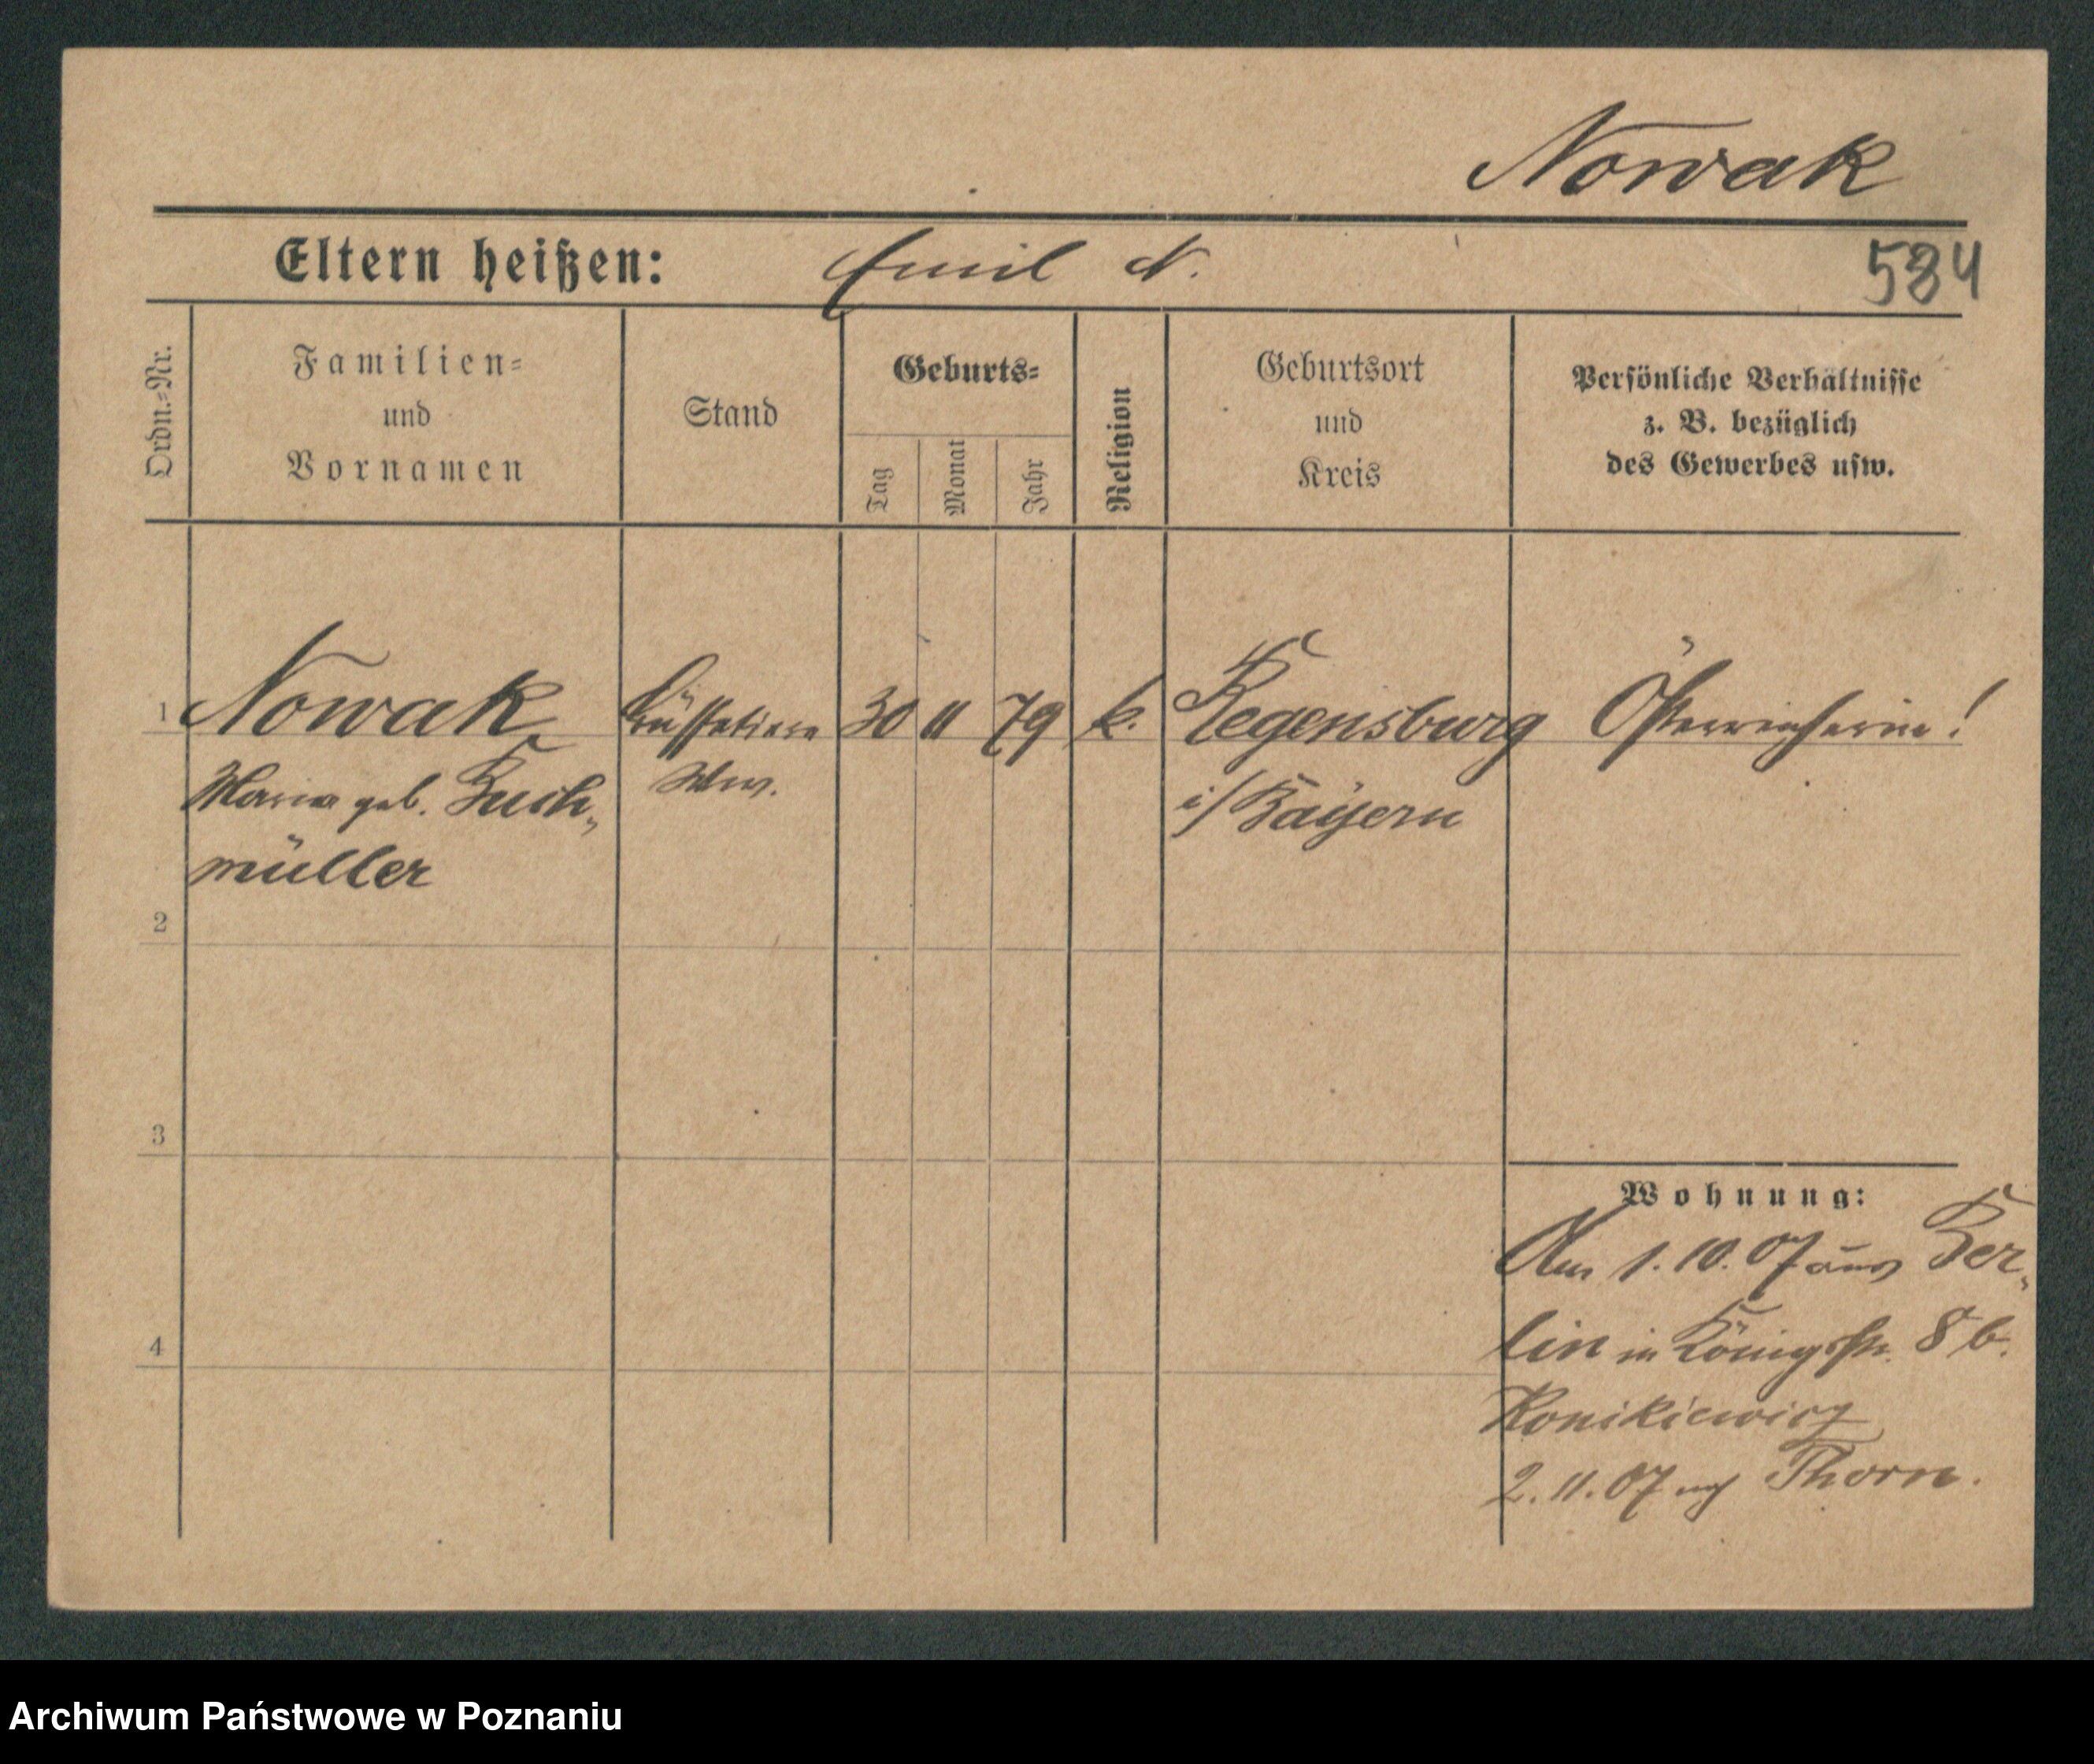 Nowak
Eltern heißen: Emil N.
584
Ordn.-Nr.
Familien-
und
Vornamen
Stand
Geburts-
Tag
Monat
Jahr
Religion
Geburtsort
und
Kreis
Persönliche Verhältnisse
z. B. bezüglich
des Gewerbes usw.
1 Nowak Büffetiere 30 11 79 k. Regensburg Österreicherin!
Maria geb. Buch-
Ww.
i/Bayern
müller
2
3
Wohnung:
Am 1.10.07 aus Ber-
lin in Königstr. 8 b.
4
Konikiewicz
2.11.07 nch Thorn.
Archiwum Państwowe w Poznaniu